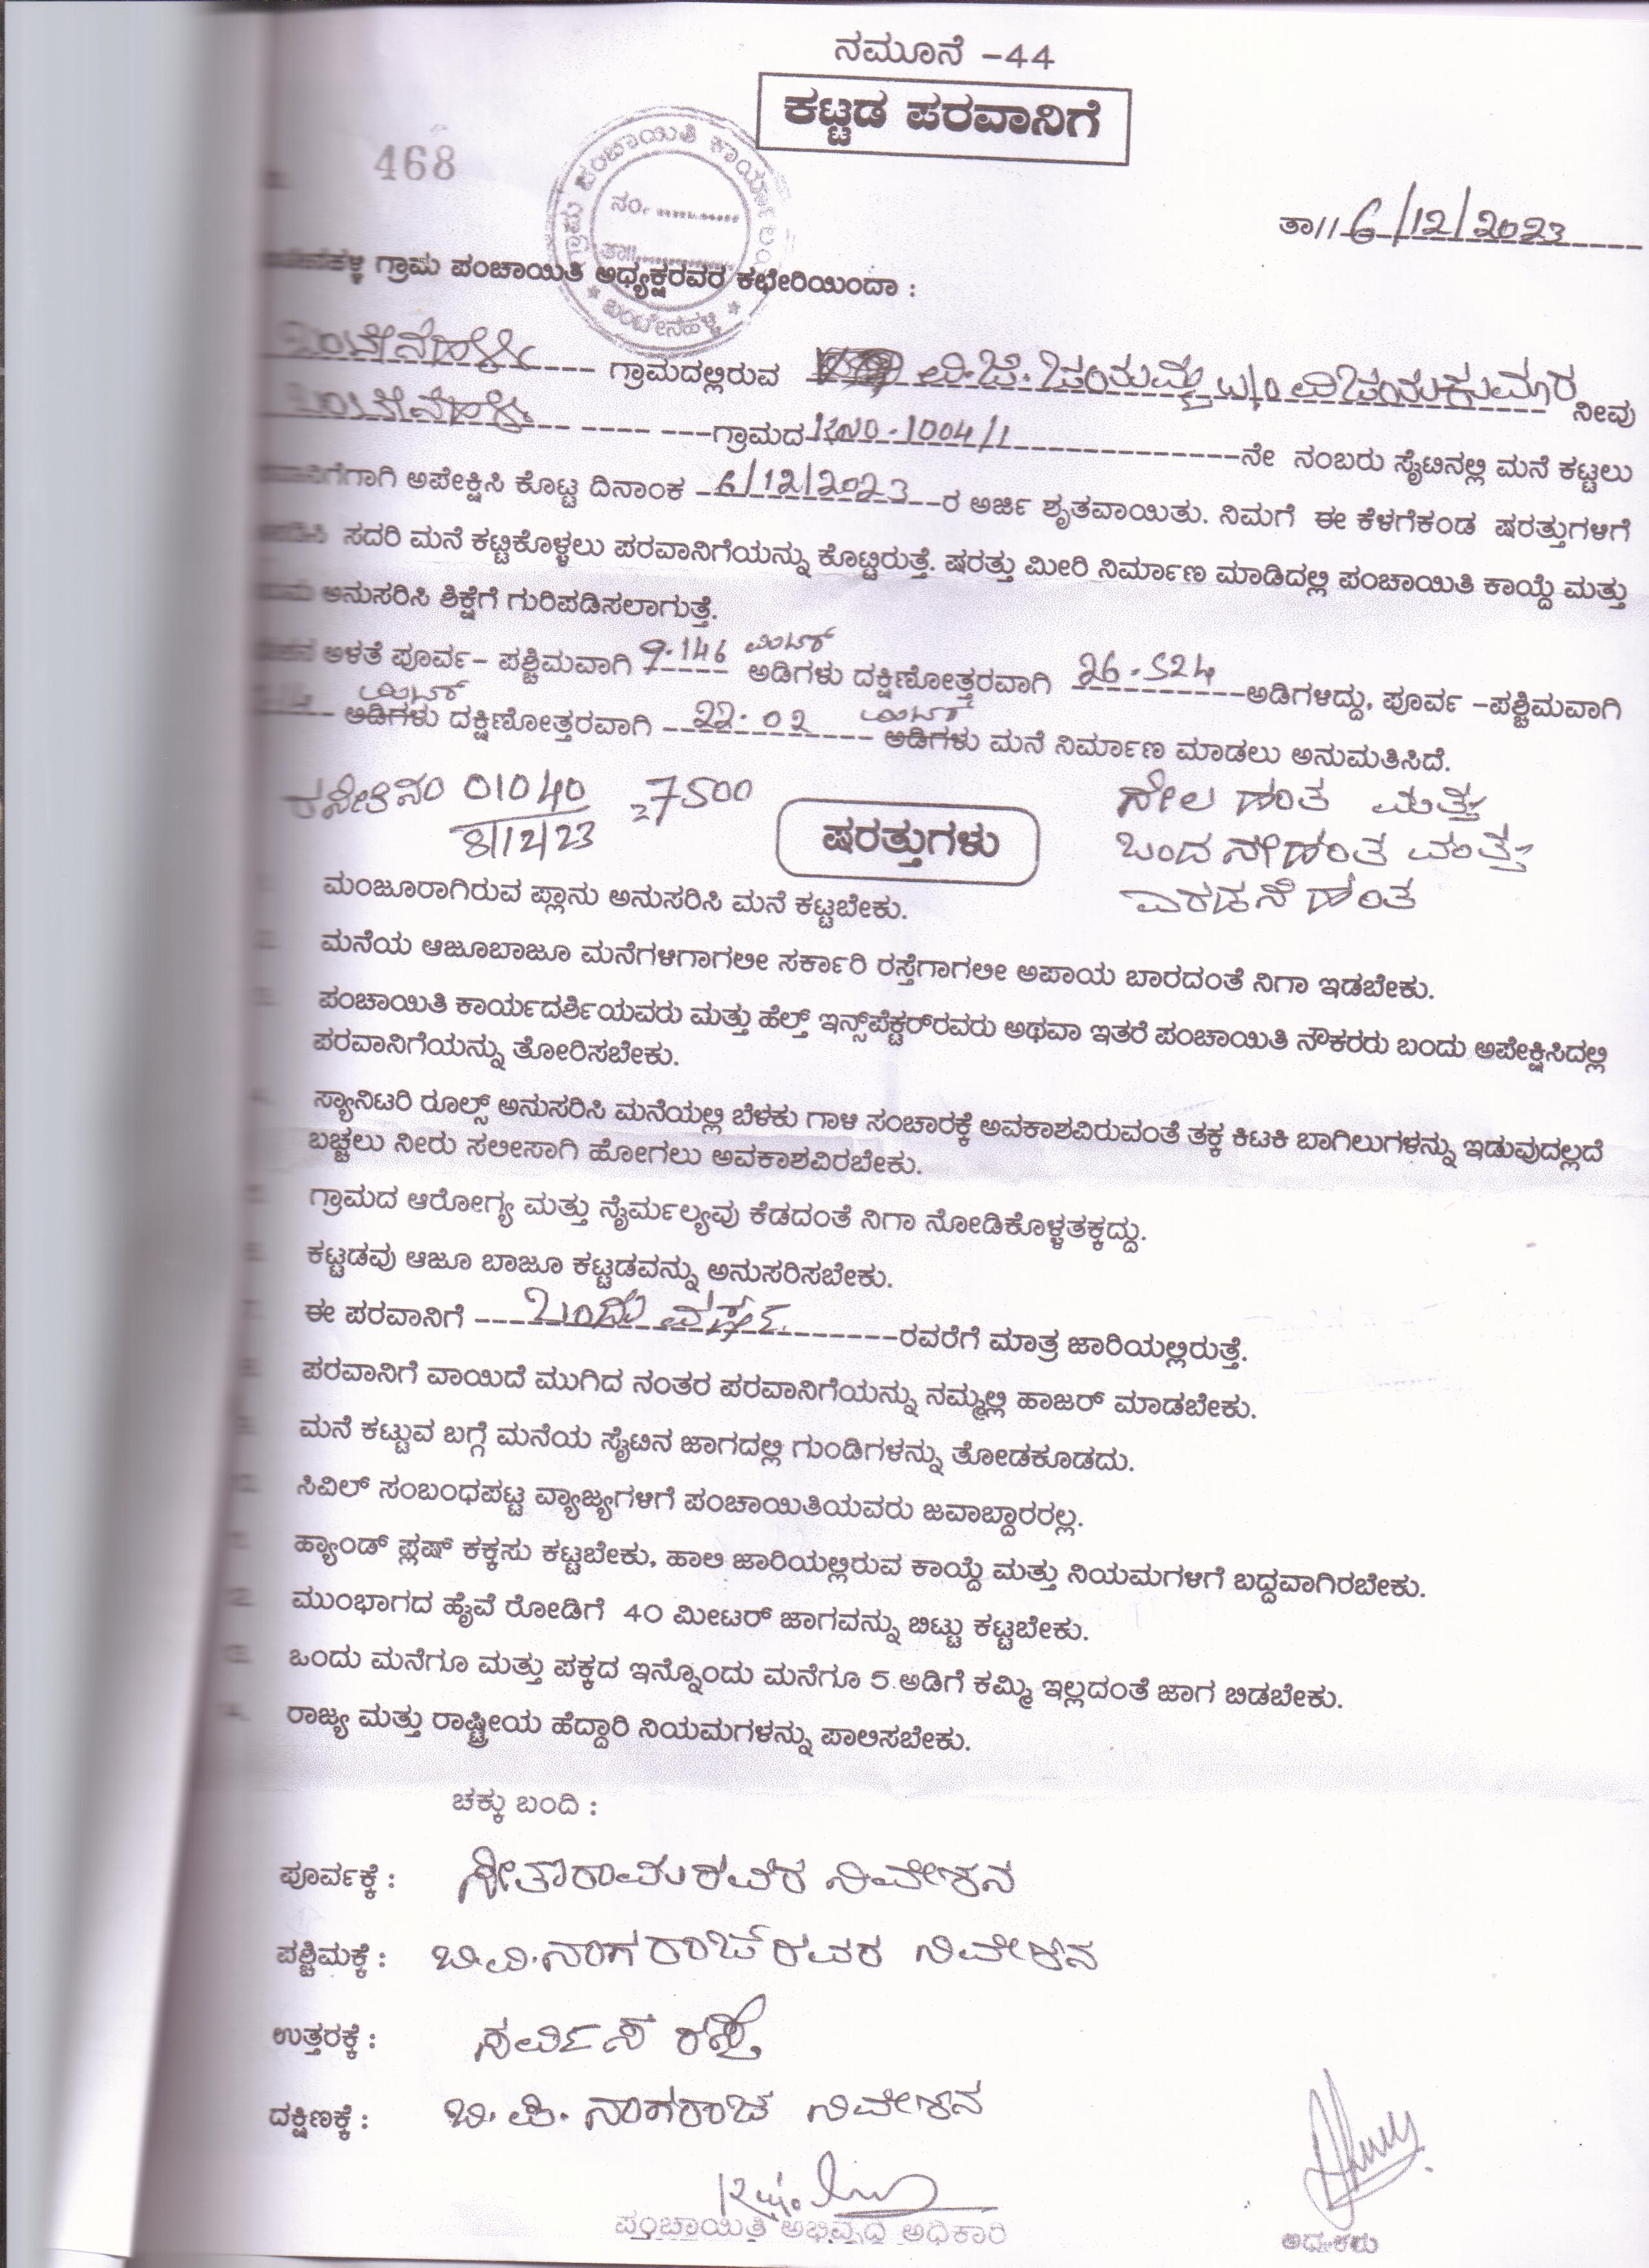 ನಮೂನೆ -44
ಕಟ್ಟಡ ಪರವಾನಿಗೆ
468
ಗ್ರಾಮ ಪಂಚಾಯಿತಿ ಕಾರ್ಯಾಲಯ
ನಂ.
ತಾ||
ತಾ// 6/12/2023
ಗ್ರಾಮ ಪಂಚಾಯಿತಿ ಅಧ್ಯಕ್ಷರವರ ಕಛೇರಿಯಿಂದಾ :
ಗ್ರಾಮದಲ್ಲಿರುವ ವಿ.ಜೆ. ಜಯಮ್ಮ w/o ವಿಜಯಕುಮಾರ ನೀವು
ಗ್ರಾಮದ KNO-1004/1 ನೇ ನಂಬರು ಸೈಟಿನಲ್ಲಿ ಮನೆ ಕಟ್ಟಲು
ಅಪೇಕ್ಷಿಸಿ ಕೊಟ್ಟ ದಿನಾಂಕ 6/12/2023 ರ ಅರ್ಜಿ ಶೃತವಾಯಿತು. ನಿಮಗೆ ಈ ಕೆಳಗೆಕಂಡ ಷರತ್ತುಗಳಿಗೆ
ಸದರಿ ಮನೆ ಕಟ್ಟಿಕೊಳ್ಳಲು ಪರವಾನಿಗೆಯನ್ನು ಕೊಟ್ಟಿರುತ್ತೆ. ಷರತ್ತು ಮೀರಿ ನಿರ್ಮಾಣ ಮಾಡಿದಲ್ಲಿ ಪಂಚಾಯಿತಿ ಕಾಯ್ದೆ ಮತ್ತು
ಅನುಸರಿಸಿ ಶಿಕ್ಷೆಗೆ ಗುರಿಪಡಿಸಲಾಗುತ್ತೆ.
ಅಳತೆ ಪೂರ್ವ- ಪಶ್ಚಿಮವಾಗಿ 9.146 ಮೀಟರ್ ಅಡಿಗಳು ದಕ್ಷಿಣೋತ್ತರವಾಗಿ 26.524 ಅಡಿಗಳಿದ್ದು, ಪೂರ್ವ -ಪಶ್ಚಿಮವಾಗಿ
ಮೀಟರ್ ಅಡಿಗಳು ದಕ್ಷಿಣೋತ್ತರವಾಗಿ 22.02 ಮೀಟರ್ ಅಡಿಗಳು ಮನೆ ನಿರ್ಮಾಣ ಮಾಡಲು ಅನುಮತಿಸಿದೆ.
ರಸೀದಿ ನಂ 01040 7500
8/12/23
ನೆಲ ಹಂತ ಮತ್ತು
ಒಂದನೇ ಹಂತ ಮತ್ತು
ಎರಡನೆ ಹಂತ
ಷರತ್ತುಗಳು
ಮಂಜೂರಾಗಿರುವ ಪ್ಲಾನು ಅನುಸರಿಸಿ ಮನೆ ಕಟ್ಟಬೇಕು.
ಮನೆಯ ಆಜೂಬಾಜೂ ಮನೆಗಳಿಗಾಗಲೀ ಸರ್ಕಾರಿ ರಸ್ತೆಗಾಗಲೀ ಅಪಾಯ ಬಾರದಂತೆ ನಿಗಾ ಇಡಬೇಕು.
ಪಂಚಾಯಿತಿ ಕಾರ್ಯದರ್ಶಿಯವರು ಮತ್ತು ಹೆಲ್ತ್ ಇನ್ಸ್‌ಪೆಕ್ಟರ್‌ರವರು ಅಥವಾ ಇತರೆ ಪಂಚಾಯಿತಿ ನೌಕರರು ಬಂದು ಅಪೇಕ್ಷಿಸಿದಲ್ಲಿ
ಪರವಾನಿಗೆಯನ್ನು ತೋರಿಸಬೇಕು.
ಸ್ಯಾನಿಟರಿ ರೂಲ್ಸ್ ಅನುಸರಿಸಿ ಮನೆಯಲ್ಲಿ ಬೆಳಕು ಗಾಳಿ ಸಂಚಾರಕ್ಕೆ ಅವಕಾಶವಿರುವಂತೆ ತಕ್ಕ ಕಿಟಕಿ ಬಾಗಿಲುಗಳನ್ನು ಇಡುವುದಲ್ಲದೆ
ಬಚ್ಚಲು ನೀರು ಸಲೀಸಾಗಿ ಹೋಗಲು ಅವಕಾಶವಿರಬೇಕು.
ಗ್ರಾಮದ ಆರೋಗ್ಯ ಮತ್ತು ನೈರ್ಮಲ್ಯವು ಕೆಡದಂತೆ ನಿಗಾ ನೋಡಿಕೊಳ್ಳತಕ್ಕದ್ದು.
ಕಟ್ಟಡವು ಆಜೂ ಬಾಜೂ ಕಟ್ಟಡವನ್ನು ಅನುಸರಿಸಬೇಕು.
ಈ ಪರವಾನಿಗೆ ಒಂದು ವರ್ಷ ರವರೆಗೆ ಮಾತ್ರ ಜಾರಿಯಲ್ಲಿರುತ್ತೆ.
ಪರವಾನಿಗೆ ವಾಯಿದೆ ಮುಗಿದ ನಂತರ ಪರವಾನಿಗೆಯನ್ನು ನಮ್ಮಲ್ಲಿ ಹಾಜರ್ ಮಾಡಬೇಕು.
ಮನೆ ಕಟ್ಟುವ ಬಗ್ಗೆ ಮನೆಯ ಸೈಟಿನ ಜಾಗದಲ್ಲಿ ಗುಂಡಿಗಳನ್ನು ತೋಡಕೂಡದು.
ಸಿವಿಲ್ ಸಂಬಂಧಪಟ್ಟ ವ್ಯಾಜ್ಯಗಳಿಗೆ ಪಂಚಾಯಿತಿಯವರು ಜವಾಬ್ದಾರರಲ್ಲ.
ಹ್ಯಾಂಡ್ ಪ್ಲಷ್ ಕಕ್ಕಸು ಕಟ್ಟಬೇಕು, ಹಾಲಿ ಜಾರಿಯಲ್ಲಿರುವ ಕಾಯ್ದೆ ಮತ್ತು ನಿಯಮಗಳಿಗೆ ಬದ್ದವಾಗಿರಬೇಕು.
ಮುಂಭಾಗದ ಹೈವೆ ರೋಡಿಗೆ 40 ಮೀಟರ್ ಜಾಗವನ್ನು ಬಿಟ್ಟು ಕಟ್ಟಬೇಕು.
ಒಂದು ಮನೆಗೂ ಮತ್ತು ಪಕ್ಕದ ಇನ್ನೊಂದು ಮನೆಗೂ 5 ಅಡಿಗೆ ಕಮ್ಮಿ ಇಲ್ಲದಂತೆ ಜಾಗ ಬಿಡಬೇಕು.
ರಾಜ್ಯ ಮತ್ತು ರಾಷ್ಟ್ರೀಯ ಹೆದ್ದಾರಿ ನಿಯಮಗಳನ್ನು ಪಾಲಿಸಬೇಕು.
ಚಕ್ಕು ಬಂದಿ :
ಪೂರ್ವಕ್ಕೆ : ಸೀತಾರಾಮರವರ ನಿವೇಶನ
ಪಶ್ಚಿಮಕ್ಕೆ : ಬಿ.ವಿ.ನಾಗರಾಜ್‌ರವರ ನಿವೇಶನ
ಉತ್ತರಕ್ಕೆ : ಸರ್ವಿಸ್ ರಸ್ತೆ
ದಕ್ಷಿಣಕ್ಕೆ : ಬಿ.ವಿ. ನಾಗರಾಜ ನಿವೇಶನ
ಪಂಚಾಯಿತಿ ಅಭಿವೃದ್ಧಿ ಅಧಿಕಾರಿ
ಅಧ್ಯಕ್ಷರು